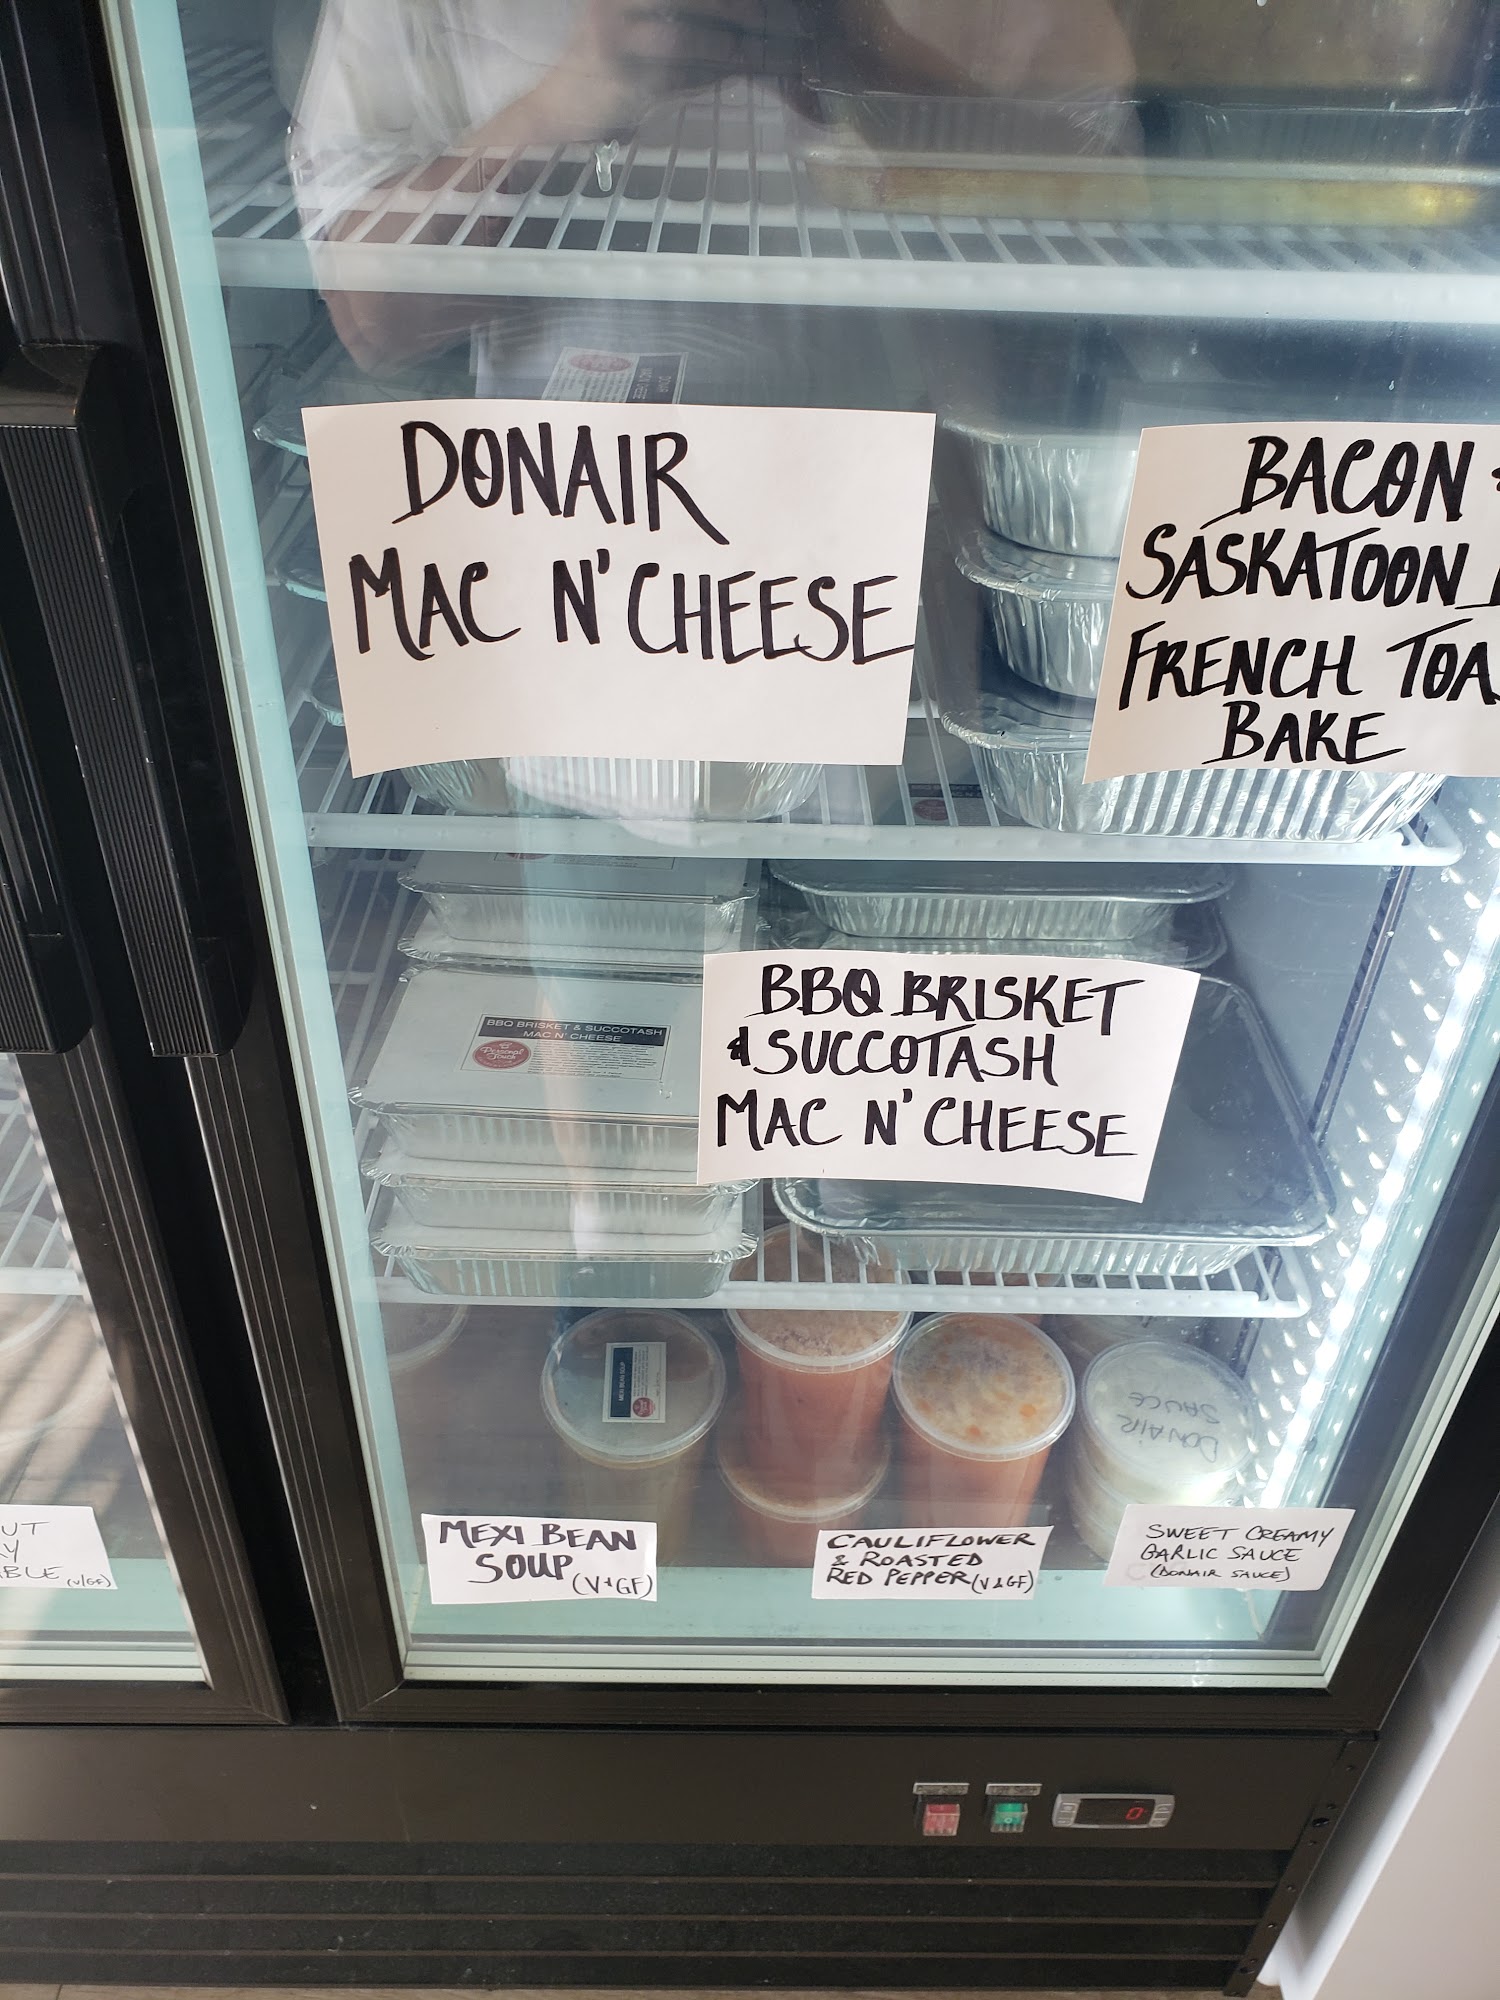 DONAIR
MAC N' CHEESE
BACON
SASKATOON
FRENCH TOA
BAKE
BBQ BRISKET
& SUCCOTASH
MAC N' CHEESE
BBQ BRISKET & SUCCOTASH
MAC N' CHEESE
Personal
Touch
MEXI BEAN SOUP
DONAIR
SAUCE
UT
Y
BLE (V/GF)
MEXI BEAN
SOUP (V+GF)
CAULIFLOWER
& ROASTED
RED PEPPER (V&GF)
SWEET CREAMY
GARLIC SAUCE
(DONAIR SAUCE)
0